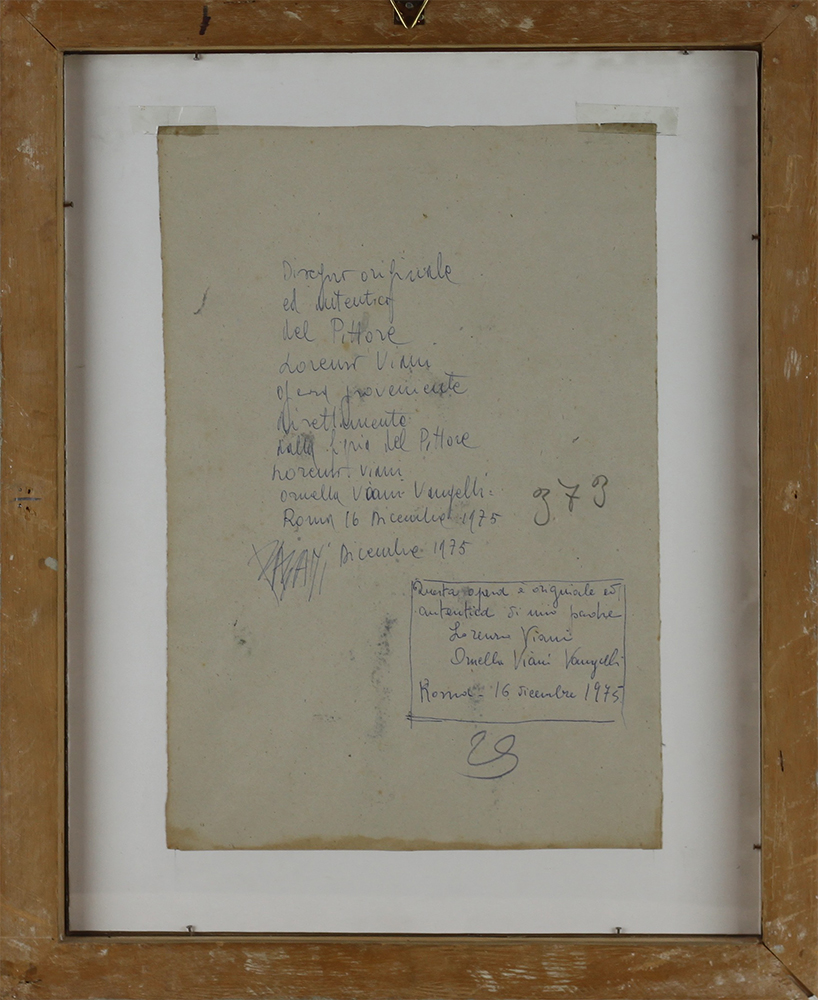 Disegno originale
ed autentico
del Pittore
Lorenzo Viani
opera proveniente
direttamente
dalla figlia del Pittore
Lorenzo Viani
Ornella Viani Vangelli
Roma 16 Dicembre 1975
Dicembre 1975
373
Questa opera è originale ed
autentica di mio padre
Lorenzo Viani
Ornella Viani Vangelli
Roma - 16 dicembre 1975